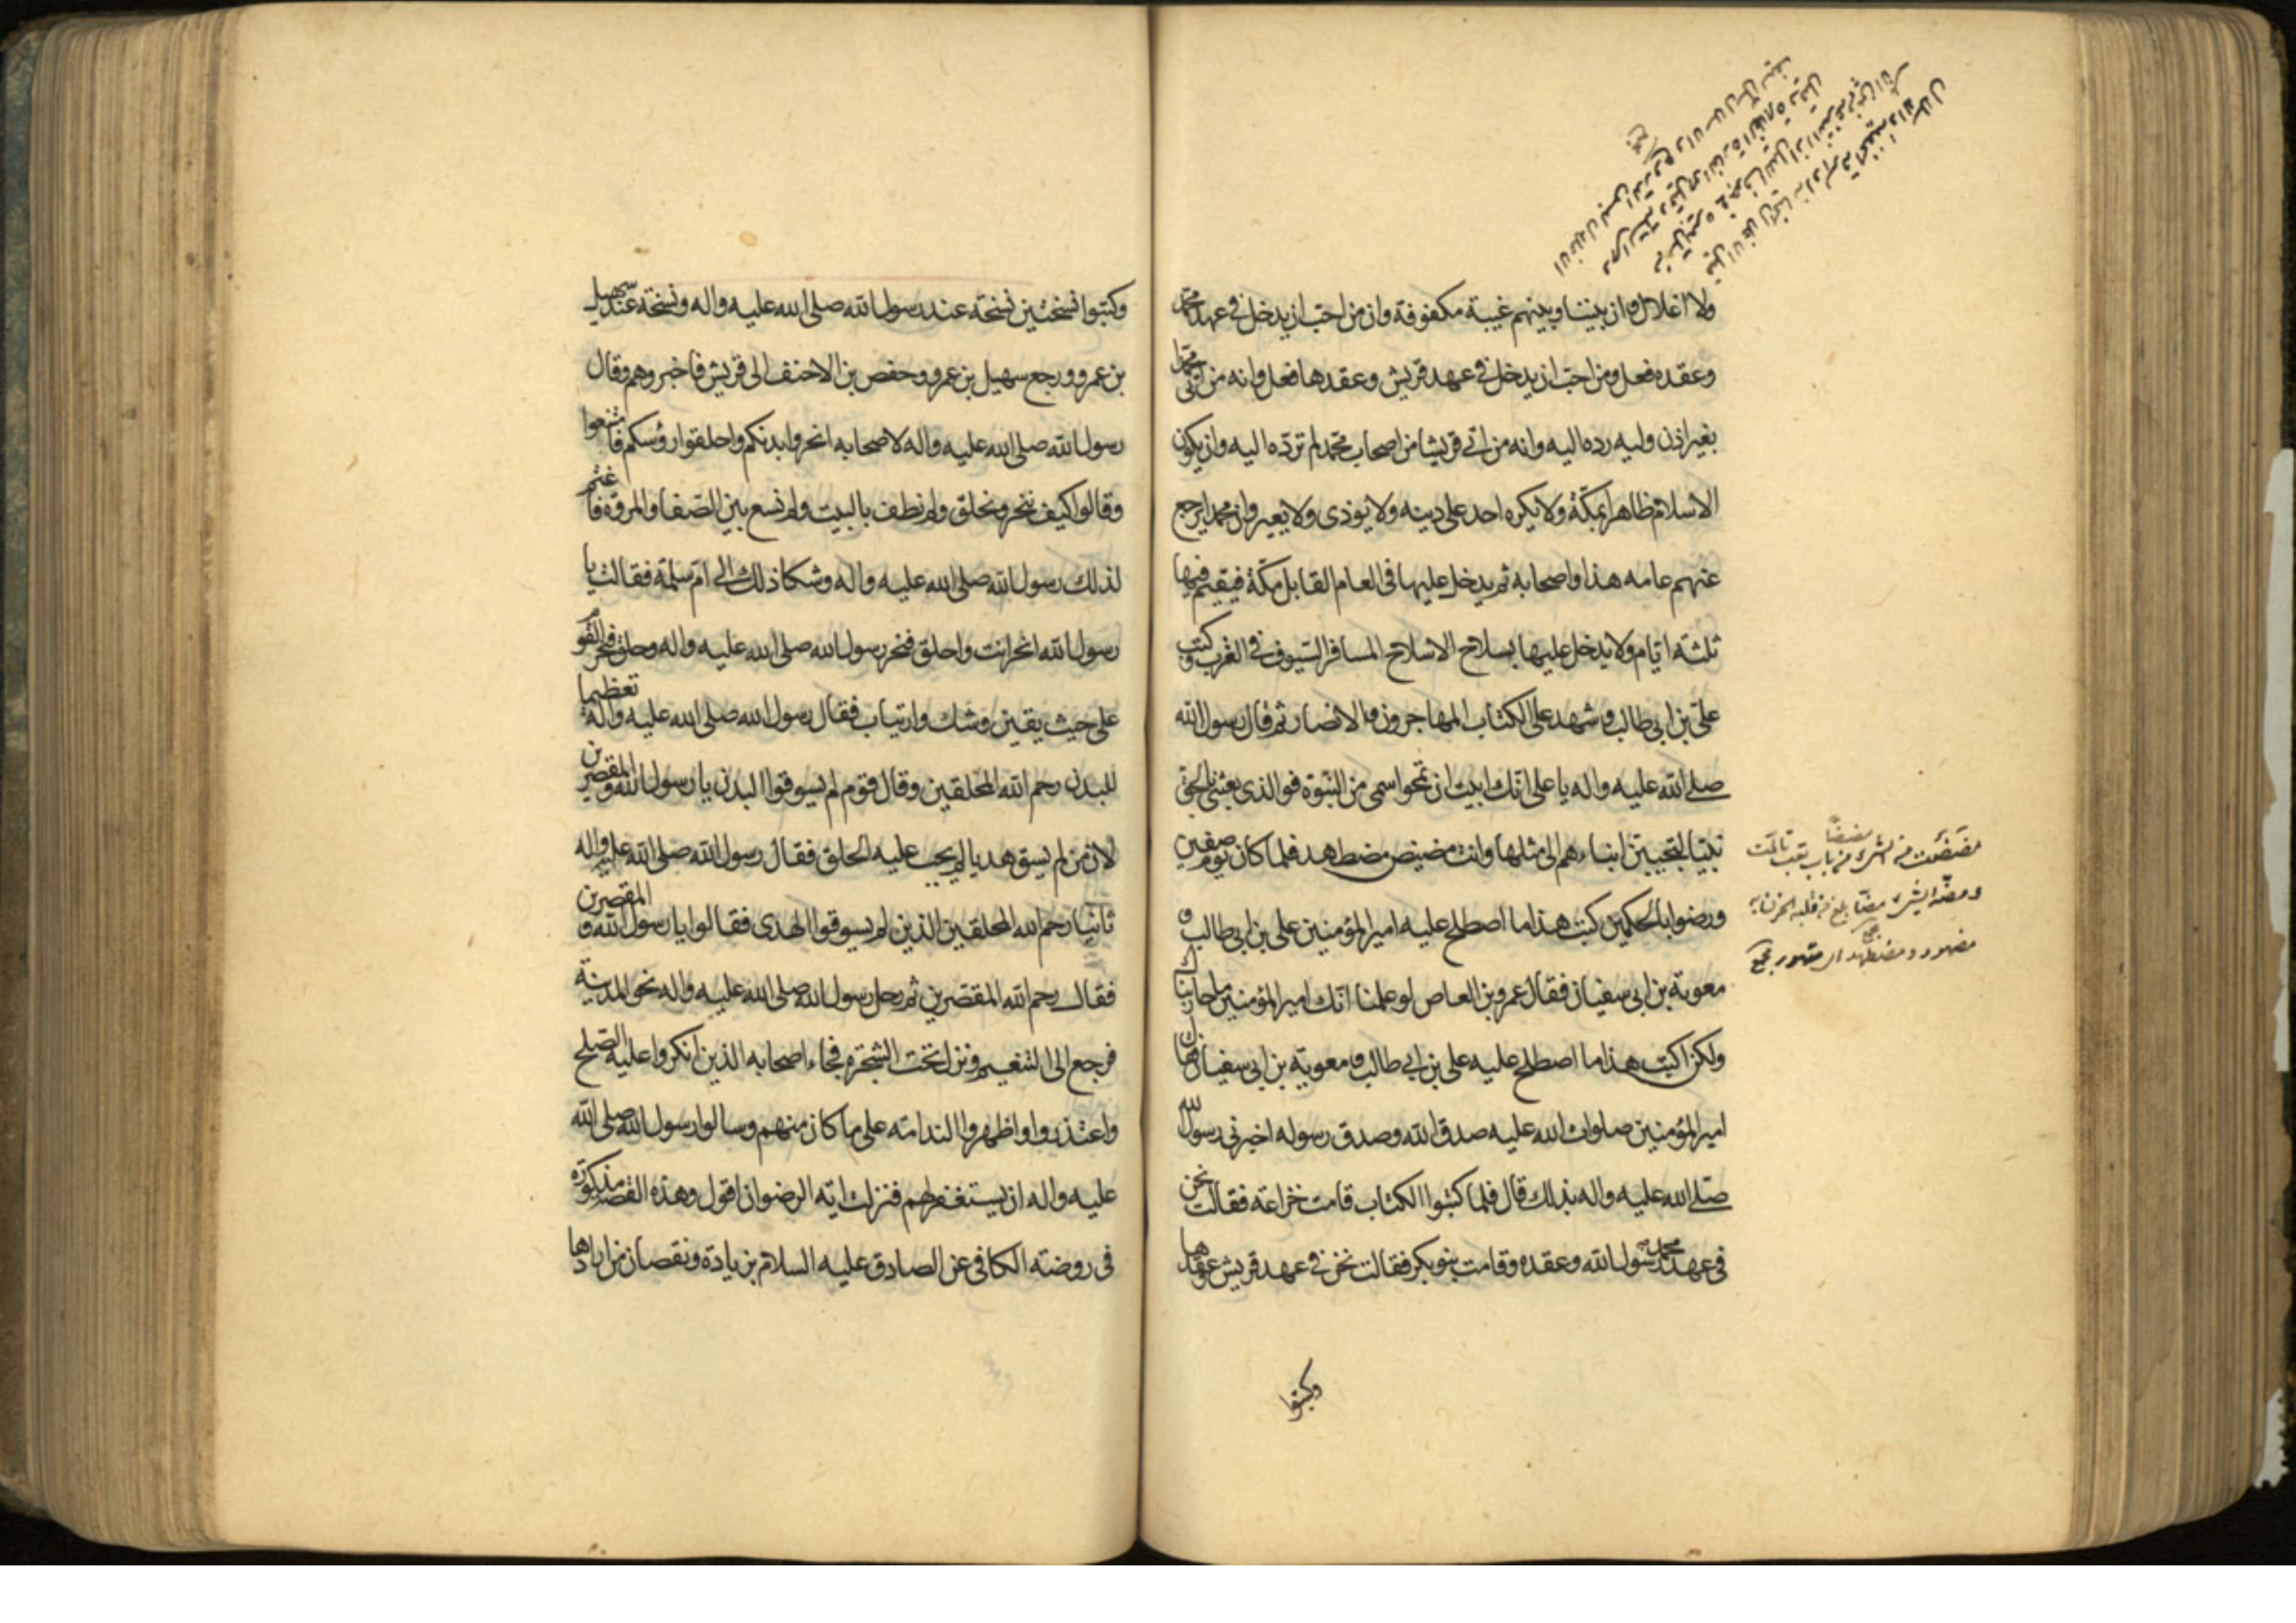 ولا اغلال وان بيننا وبينهم غيبة مكفوفة وان من احب ان يدخل في عهد محمد
وعقده فعل ومن احب ان يدخل في عهد قريش وعقدها فعل وانه من اتى محمدا
بغير اذن وليه رده اليه وانه من اتى قريشا من اصحاب محمد لم تردّه اليه وان يكون
الاسلام ظاهرا بمكّة ولا يكره احد على دينه ولا يوذى ولا يعير وان محمدا يرجع
عنهم عامه هذا واصحابه ثم يدخل عليها في العام القابل مكّة فيقيم فيها
ثلثة ايّام ولا يدخل عليها بسلاح الا سلاح المسافر السّيوف في القرب وكتب
علي بن ابي طالب و شهد على الكتاب المهاجرون والانصار ثم قال رسول الله
صلى الله عليه واله يا على انّك ابيت ان تمحوا اسمى من النّبوة فو الذى بعثنى بالحق
نبيّا لتجيبنّ ابناءهم الى مثلها وانت مضيض مضطهد فلما كان يوم صفين
ورضوا بالحكمين كتب هذا ما اصطلح عليه امير المؤمنين على بن ابى طالب و
معوية بن ابى سفيان فقال عمرو بن العاص لو علمنا انّك امير المؤمنين ما حاربناك
ولكن اكتب هذا ما اصطلح عليه على بن ابي طالب و معوية بن ابى سفيان فقال
امير المؤمنين صلوات الله عليه صدق الله وصدق رسوله اخبرنى رسول الله
صلى الله عليه واله بذلك قال فلما كتبوا الكتاب قامت خزاعة فقالت نحن
في عهد محمد رسول الله وعقده وقامت بنو بكر فقالت نحن في عهد قريش وعقدها
وكتبوا
مضضت من الشئ مضضا من باب تعب تالمت
ومضّه الشئ مضّا بلغ من قلبه الحزن به
مضهود ومضطهد اى مقهور مجمع
وكتبوا نسختين نسخة عند رسول الله صلى الله عليه واله ونسخة عند سهيل
بن عمرو ورجع سهيل بن عمرو وحفص بن الاحنف الى قريش فاخبروهم وقال
رسول الله صلى الله عليه واله لاصحابه انحروا بدنكم واحلقوا رؤسكم فامتنعوا
وقالوا كيف ننحر ونحلق ولم نطف بالبيت ولم نسع بين الصّفا والمروة فاغتم
لذلك رسول الله صلى الله عليه واله وشكا ذلك الى امّ سلمة فقالت يا
رسول الله انحر انت واحلق فنحر رسول الله صلى الله عليه واله وحلق فنحر القوم
على حيث يقين وشك وارتياب فقال رسول الله صلى الله عليه واله تعظيما
للبدن رحم الله المحلقين وقال قوم لم يسوقوا البدن يا رسول الله والمقصرين
لان من لم يسق هديا لم يجب عليه الحلق فقال رسول الله صلى الله عليه واله
ثانيا رحم الله المحلقين الذين لم يسوقوا الهدى فقالوا يا رسول الله و المقصرين
فقال رحم الله المقصّرين ثم رحل رسول الله صلى الله عليه واله نحو المدينة
فرجع الى التنعيم ونزل تحت الشجرة فجاء اصحابه الذين انكروا عليه الصّلح
واعتذروا واظهروا الندامة على ما كان منهم وسالوا رسول الله صلى الله
عليه واله ان يستغفر لهم فنزلت اية الرضوان اقول وهذه القصّة مذكورة
في روضة الكافى عن الصادق عليه السلام بزيادة ونقصان من ارادها